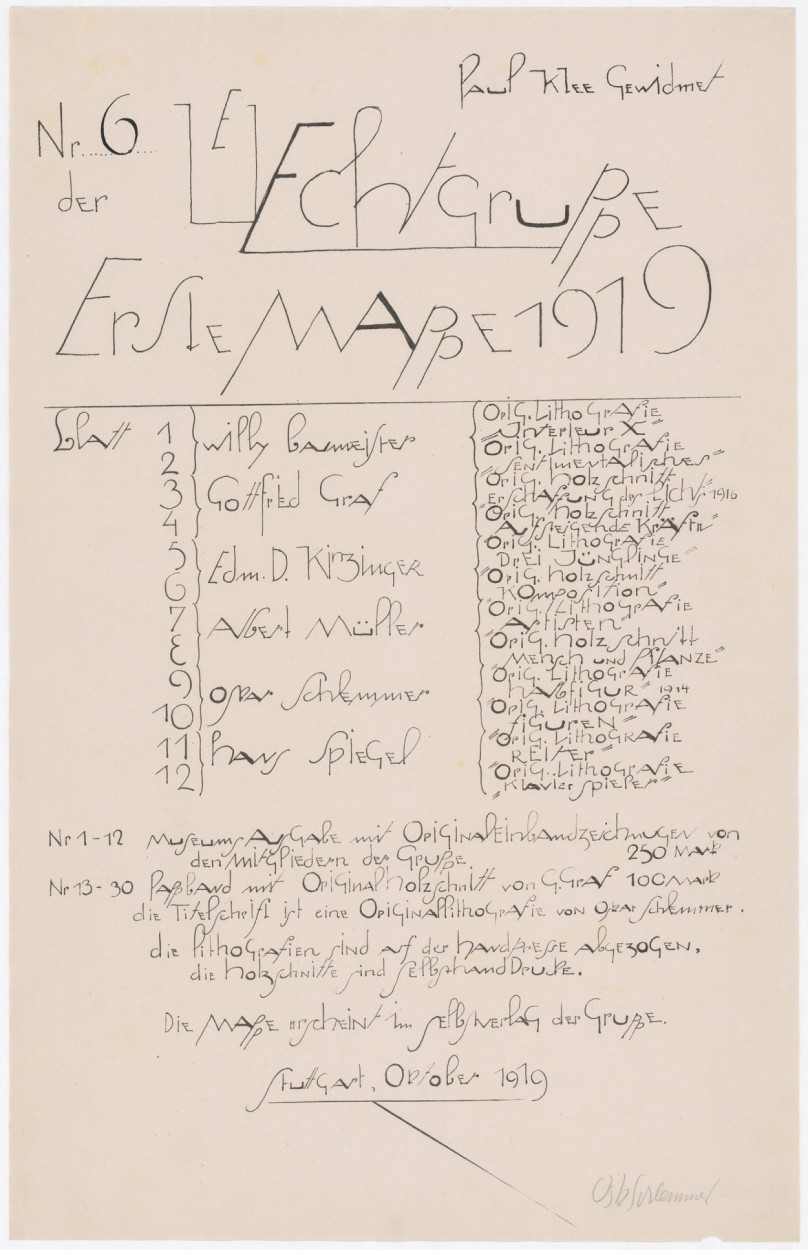 Paul Klee Gewidmet
Nr. 6
der
ÜEchtgruppe
Erste Mappe 1919
Blatt 1 Willy Baumeister Orig. LithoGrafie
„Interieur X“
2 Orig. LithoGrafie
„Sentimentalisches“
3 Gottfried Graf Orig. Holzschnitt
Erschaffung der Eva 1916
4 Orig. Holzschnitt
„Aufsteigende Kräfte“
5 Edm. D. Kinzinger Orig. LithoGrafie
„Drei Jünglinge“
6 Orig. Holzschnitt
„Komposition“
7 Albert Müller Orig. LithoGrafie
„Artisten“
8 Orig. Holzschnitt
„Mensch und Pflanze“
9 Oskar Schlemmer Orig. LithoGrafie
„Halbfigur“ 1914
10 Orig. LithoGrafie
„Figuren“
11 Hans Spiegel Orig. LithoGrafie
„Reiter“
12 Orig. LithoGrafie
„Klavierspieler“
Nr 1-12 Museums Ausgabe mit Originaleinbandzeichnugen von
den Mitgliedern der Gruppe. 250 Mark
Nr 13-30 Pappband mit Originalholzschnitt von G. Graf 100 Mark
die Titelschrift ist eine OriginallithoGrafie von Oskar Schlemmer.
die LithoGrafien sind auf der Handpresse abgezogen,
die Holzschnitte sind Selbsthanddrucke.
Die Mappe erscheint im Selbstverlag der Gruppe.
Stuttgart, Oktober 1919
Osk Schlemmer